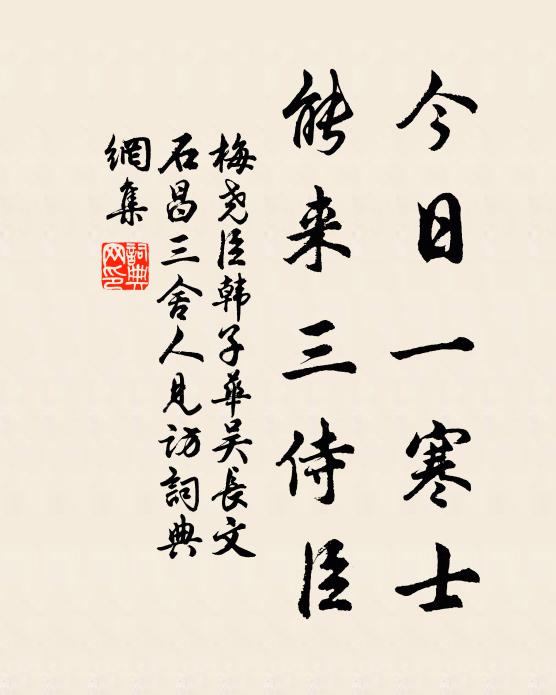 今日一寒士
能来三侍臣
梅尧臣韩子華吴長文
石昌三舍人見访詞典
網集
詞典
网印